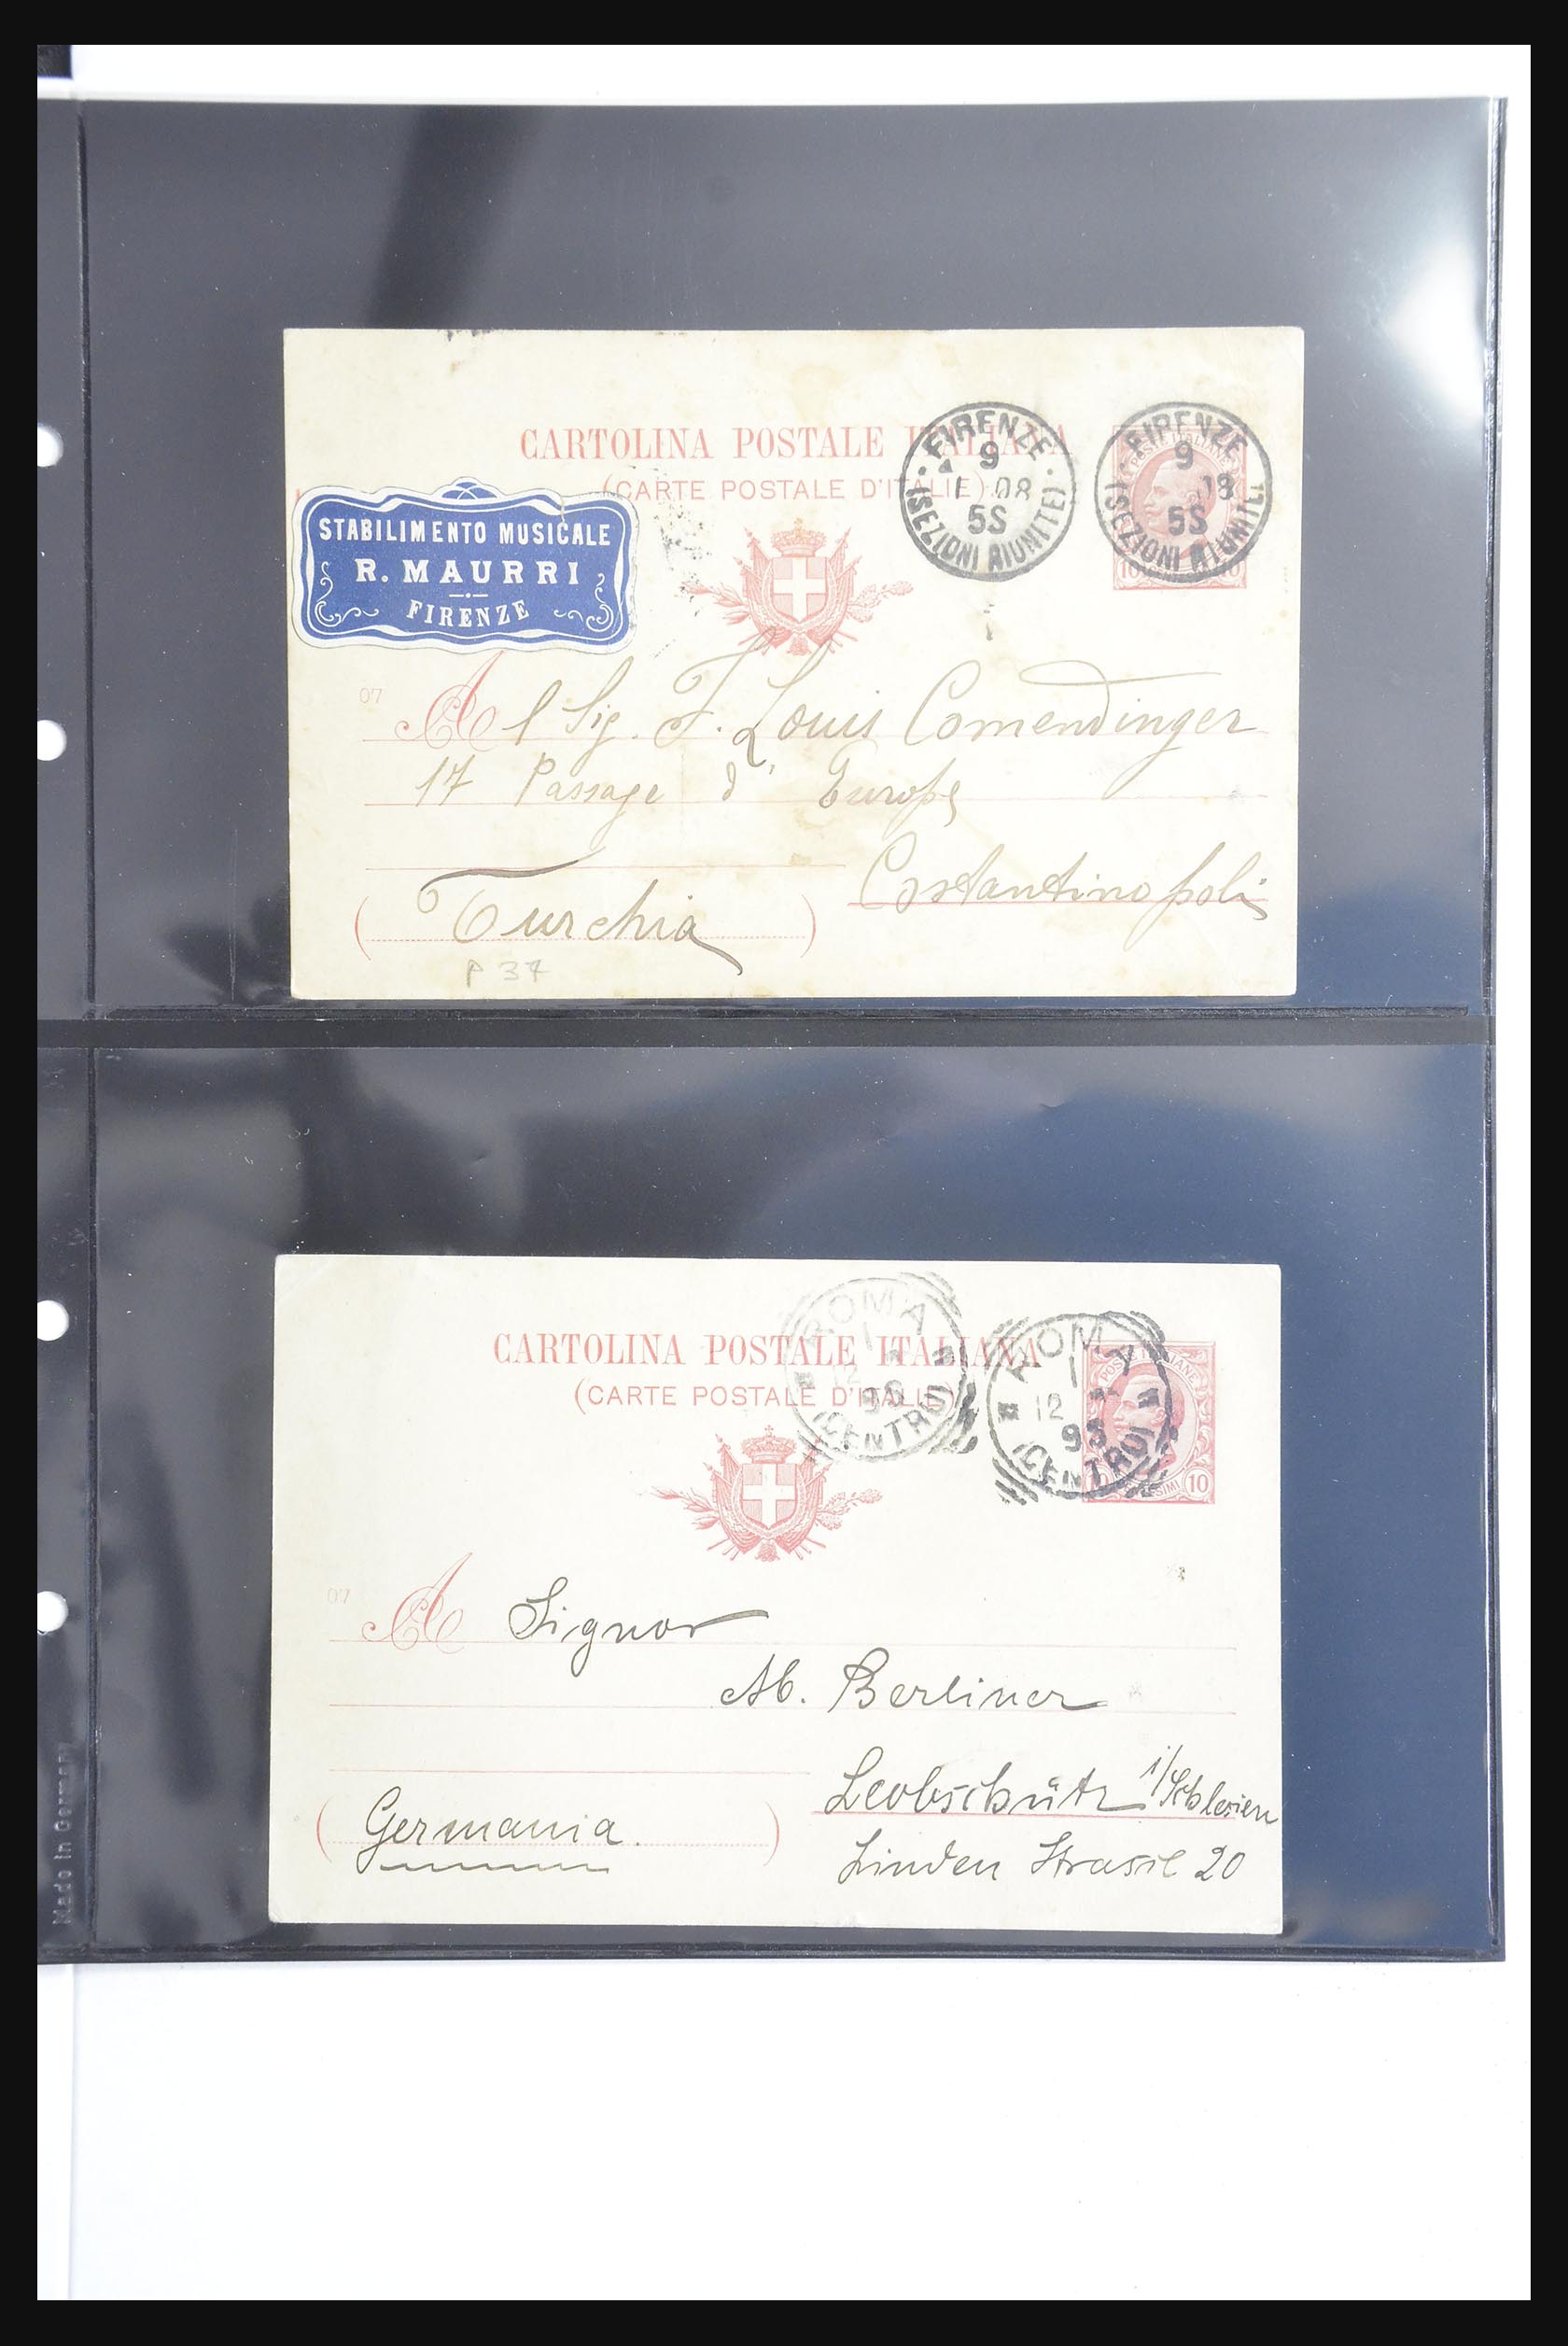 CARTOLINA POSTALE ITALIANA
(CARTE POSTALE D'ITALIE)
FIRENZE
9
1 08
5S
(SEZIONI RIUNITE)
FIRENZE
9
08
5S
(SEZIONI RIUNITE)
POSTE ITALIANE
10
STABILIMENTO MUSICALE
R. MAURRI
FIRENZE
07
Al Sig. F. Louis Comendinger
17 Passage d' Europe
Costantinopoli
(Turchia)
P 37
CARTOLINA POSTALE ITALIANA
(CARTE POSTALE D'ITALIE)
ROMA
1
12
(CENTRO)
ROMA
1
12
93
(CENTRO)
POSTE ITALIANE
10
10
07
A Signor
Ab. Berliner
Leobschütz i/Schlesien
(Germania.)
Linden Strasse 20
Made in Germany